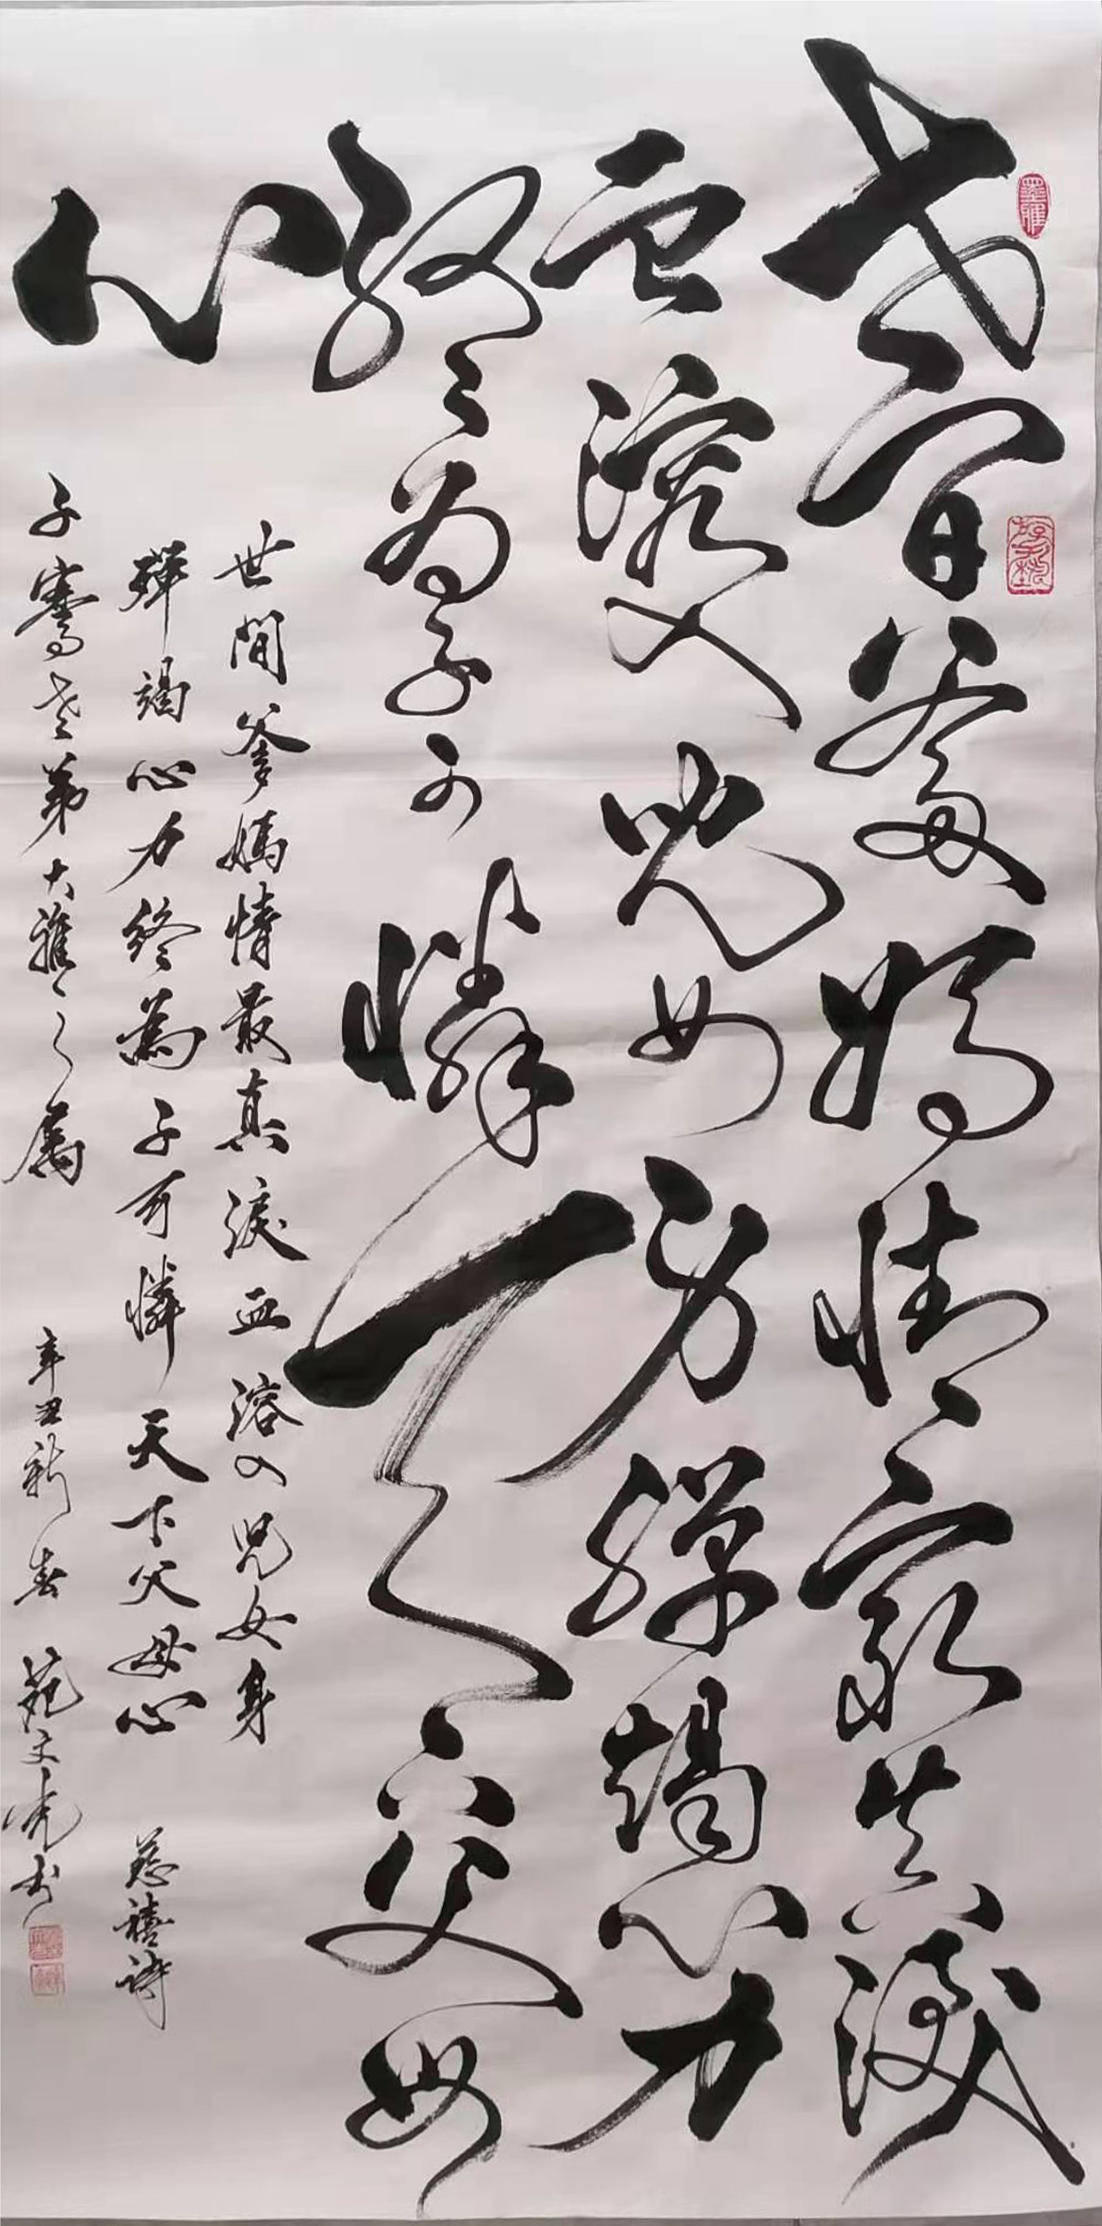 世间爹妈情最真泪
血溶入儿女身殚竭心力
终为子可怜天下父母
心
世間爹媽情最真淚血溶入兒女身
殫竭心力終為子可憐天下父母心 慈禧詩
子騫老弟大雅之屬 辛丑新春 苑文亮书